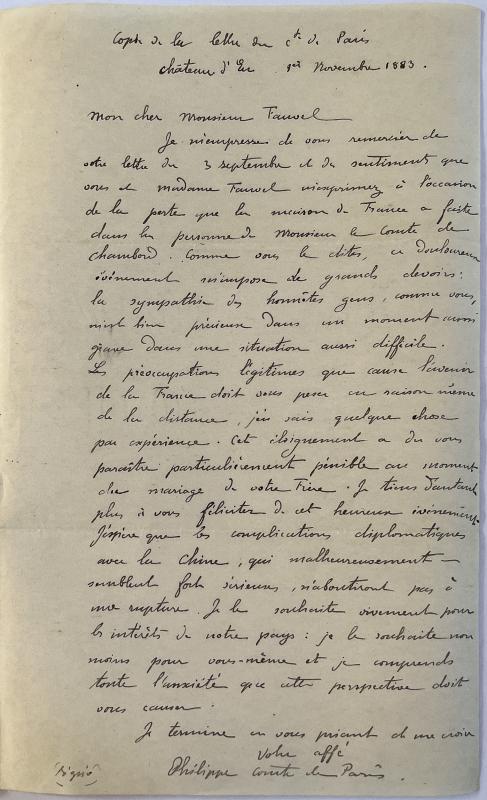 Copie de la lettre du Cte de Paris
château d'Eu 1er Novembre 1883.
Mon cher Monsieur Fauvel
Je m'empresse de vous remercier de
votre lettre du 3 septembre et des sentiments que
vous et madame Fauvel m'exprimez à l'occasion
de la perte que la maison de France a faite
dans la personne de Monsieur le Comte de
chambord. Comme vous le dites, ce douloureux
événement m'impose de grands devoirs :
la sympathie des honnêtes gens, comme vous,
m'est bien précieuse dans un moment aussi
grave dans une situation aussi difficile.
Les préoccupations légitimes que cause l'avenir
de la France doit vous peser en raison même
de la distance, j'en sais quelque chose
par expérience. Cet éloignement a du vous
paraître particulièrement pénible au moment
du mariage de votre Frère. Je tiens d'autant
plus à vous féliciter de cet heureux événement.
J'espère que les complications diplomatiques
avec la Chine, qui malheureusement —
semblent fort sérieuses, n'aboutiront pas à
une rupture. Je le souhaite vivement pour
les intérêts de notre pays : je le souhaite non
moins pour vous-même et je comprends
toute l'anxiété que cette perspective doit
vous causer.
Je termine en vous priant de me croire
votre affé
(signé) Philippe comte de Paris.